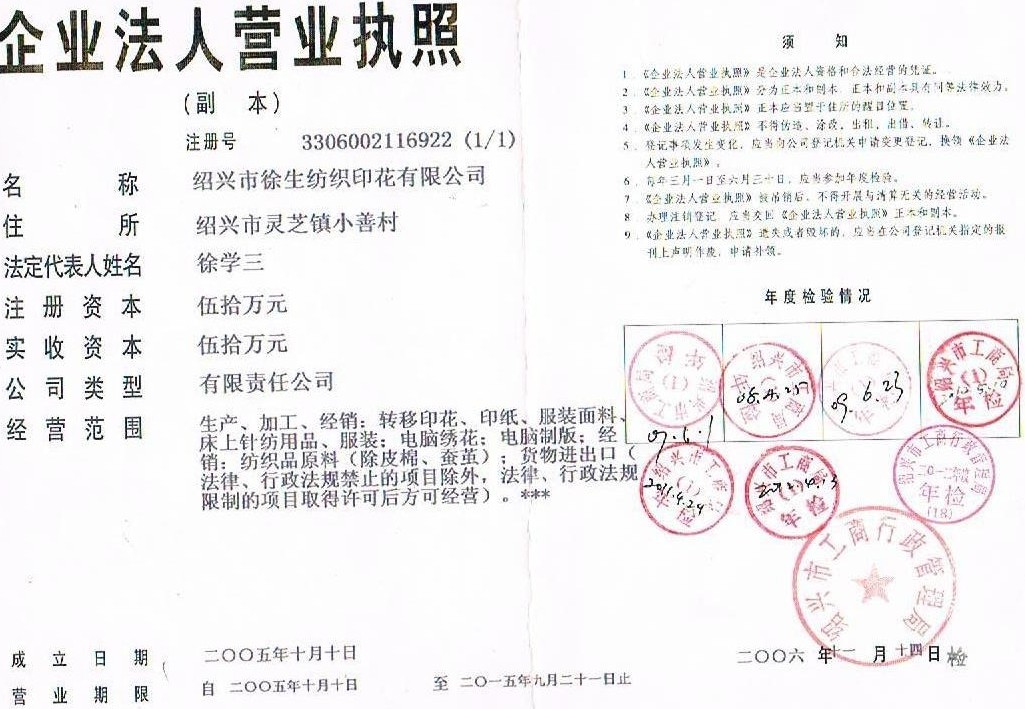 企业法人营业执照
(副 本)
注册号 3306002116922 (1/1)
名 称 绍兴市徐生纺织印花有限公司
住 所 绍兴市灵芝镇小善村
法定代表人姓名 徐学三
注 册 资 本 伍拾万元
实 收 资 本 伍拾万元
公 司 类 型 有限责任公司
经 营 范 围 生产、加工、经销：转移印花、印纸、服装面料、
床上针纺用品、服装；电脑绣花；电脑制版；经
销：纺织品原料（除皮棉、蚕茧）；货物进出口（
法律、行政法规禁止的项目除外，法律、行政法规
限制的项目取得许可后方可经营）。***
成 立 日 期 二〇〇五年十月十日
营 业 期 限 自 二〇〇五年十月十日 至 二〇一五年九月二十一日止
须 知
1．《企业法人营业执照》是企业法人资格和合法经营的凭证。
2．《企业法人营业执照》分为正本和副本，正本和副本具有同等法律效力。
3．《企业法人营业执照》正本应当置于住所的醒目位置。
4．《企业法人营业执照》不得伪造、涂改、出租、出借、转让。
5．登记事项发生变化，应当向公司登记机关申请变更登记，换领《企业法
人营业执照》。
6．每年三月一日至六月三十日，应当参加年度检验。
7．《企业法人营业执照》被吊销后，不得开展与清算无关的经营活动。
8 办理注销登记，应当交回《企业法人营业执照》正本和副本。
9．《企业法人营业执照》遗失或者毁坏的，应当在公司登记机关指定的报
刊上声明作废，申请补领。
年度检验情况
(1)
07.6.1
绍兴市
09.6.23
绍兴市工商局
(1)
年检
绍兴市工商局
(1)
检
2011.4.29
绍兴市工商局
(1)
年检
绍兴市工商行政管理局
二〇一二年度
年检
(18)
绍兴市工商行政管理局
二〇〇六 年 十一 月 十四 日 检